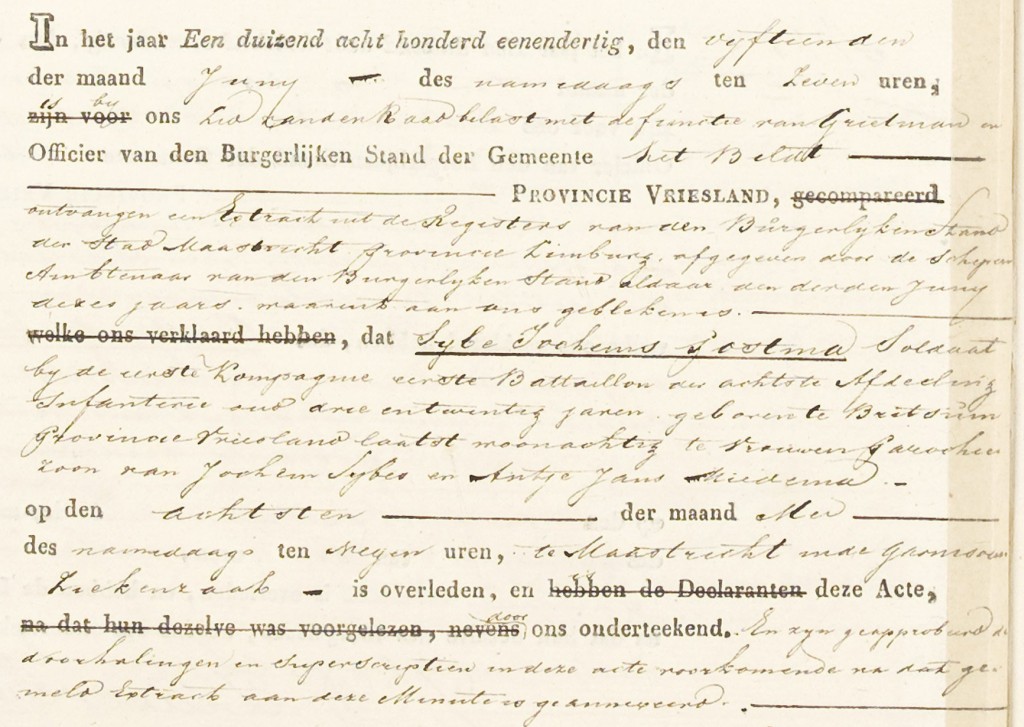 In het jaar Een duizend acht honderd eenendertig, den vyftienden
der maand Juny des namiddags ten Zeven uren,
is by
zijn voor ons Lid van den Raad belast met de functie van Grietman en
Officier van den Burgerlijken Stand der Gemeente het Bildt
PROVINCIE VRIESLAND, gecompareerd
ontvangen een Extract uit de Registers van den Burgerlyken Stand
der Stad Maastricht provincie Limburg, afgegeven door de Schepen
Ambtenaar van den Burgerlyken Stand aldaar den derden Juny
dezes jaars. waaruit aan ons gebleken is.
welke ons verklaard hebben, dat Sybe Jochems Postma Soldaat
by de eerste Kompagnie eerste Battaillon der achtste Afdeeling
Infanterie oud drie entwintig jaren. geboren te Britsum
Provincie Vriesland laatst woonachtig te Vrouwen Parochie
zoon van Jochem Sybes en Antje Jans Miedema.
op den achtsten der maand Mei
des namiddags ten Negen uren, te Maastricht in de Garnisoens
Ziekenzaal is overleden, en hebben de Declaranten deze Acte,
door
na dat hun dezelve was voorgelezen, nevens ons onderteekend. En zyn geapprobeerd de
doorhalingen en superscriptien in deze acte voorkomende na dat ge-
meld Extract aan deze Minute is geannexeerd.